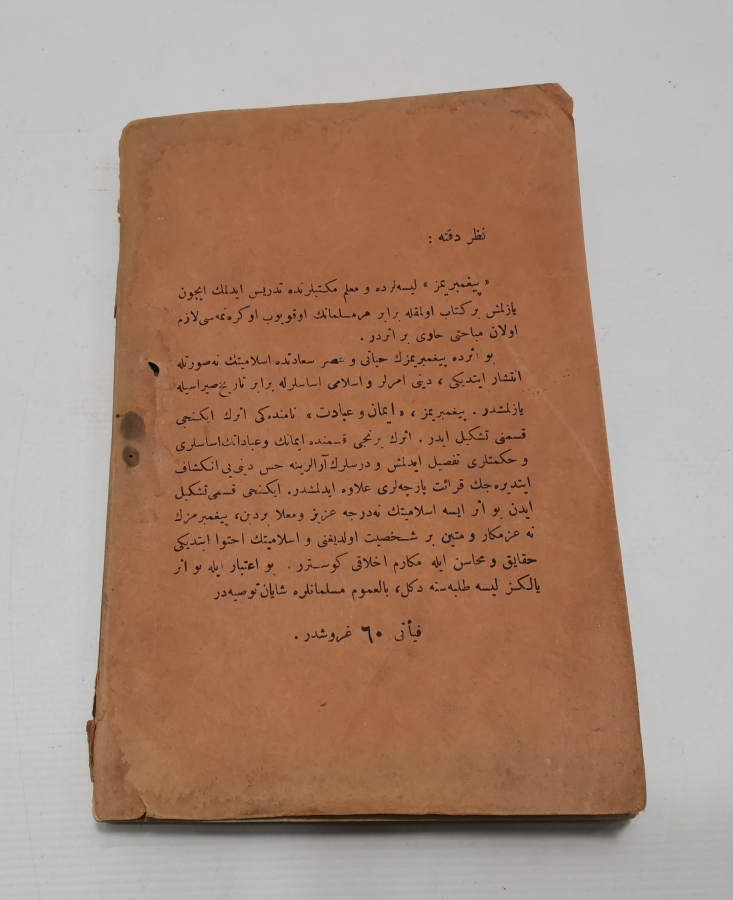 نظر دقته :
« پیغمبریمز » لیسه‌لرده و معلم مکتبلرنده تدریس ایدلمك ایچون
یازلمش بر کتاب اولمقله برابر هر مسلمانك اوقویوب اوکره‌نمه‌سی لازم
اولان مباحثی حاوی بر اثردر .
بو اثرده پیغمبریمزك حیاتی و عصر سعادتده اسلامیتك نه صورتله
انتشار ایتدیکی ، دینی امرلر و اسلامی اساسلرله برابر تاریخ صیراسیله
یازلمشدر . پیغمبریمز ، « ایمان و عبادت » نامنده‌کی اثرك ایکنجی
قسمنی تشکیل ایدر . اثرك برنجی قسمنده ایمانك و عباداتك اساسلری
و حکمتلری تفصیل ایدلمش و درسلرك آرالرینه حس دینی‌یی انکشاف
ایتدیره‌جك قرائت پارچه‌لری علاوه ایدلمشدر. ایکنجی قسمی تشکیل
ایدن بو اثر ایسه اسلامیتك نه‌درجه عزیز و معلا بر دین، پیغمبرمزك
نه عزمکار و متین بر شخصیت اولدیغنی و اسلامیتك احتوا ایتدیکی
حقایق و محاسن ایله مکارم اخلاقی کوسترر . بو اعتبار ایله بو اثر
یالکز لیسه طلبه‌سنه دکل، بالعموم مسلمانلره شایان توصیه‌در
فیأتی ٦٠ غروشدر .